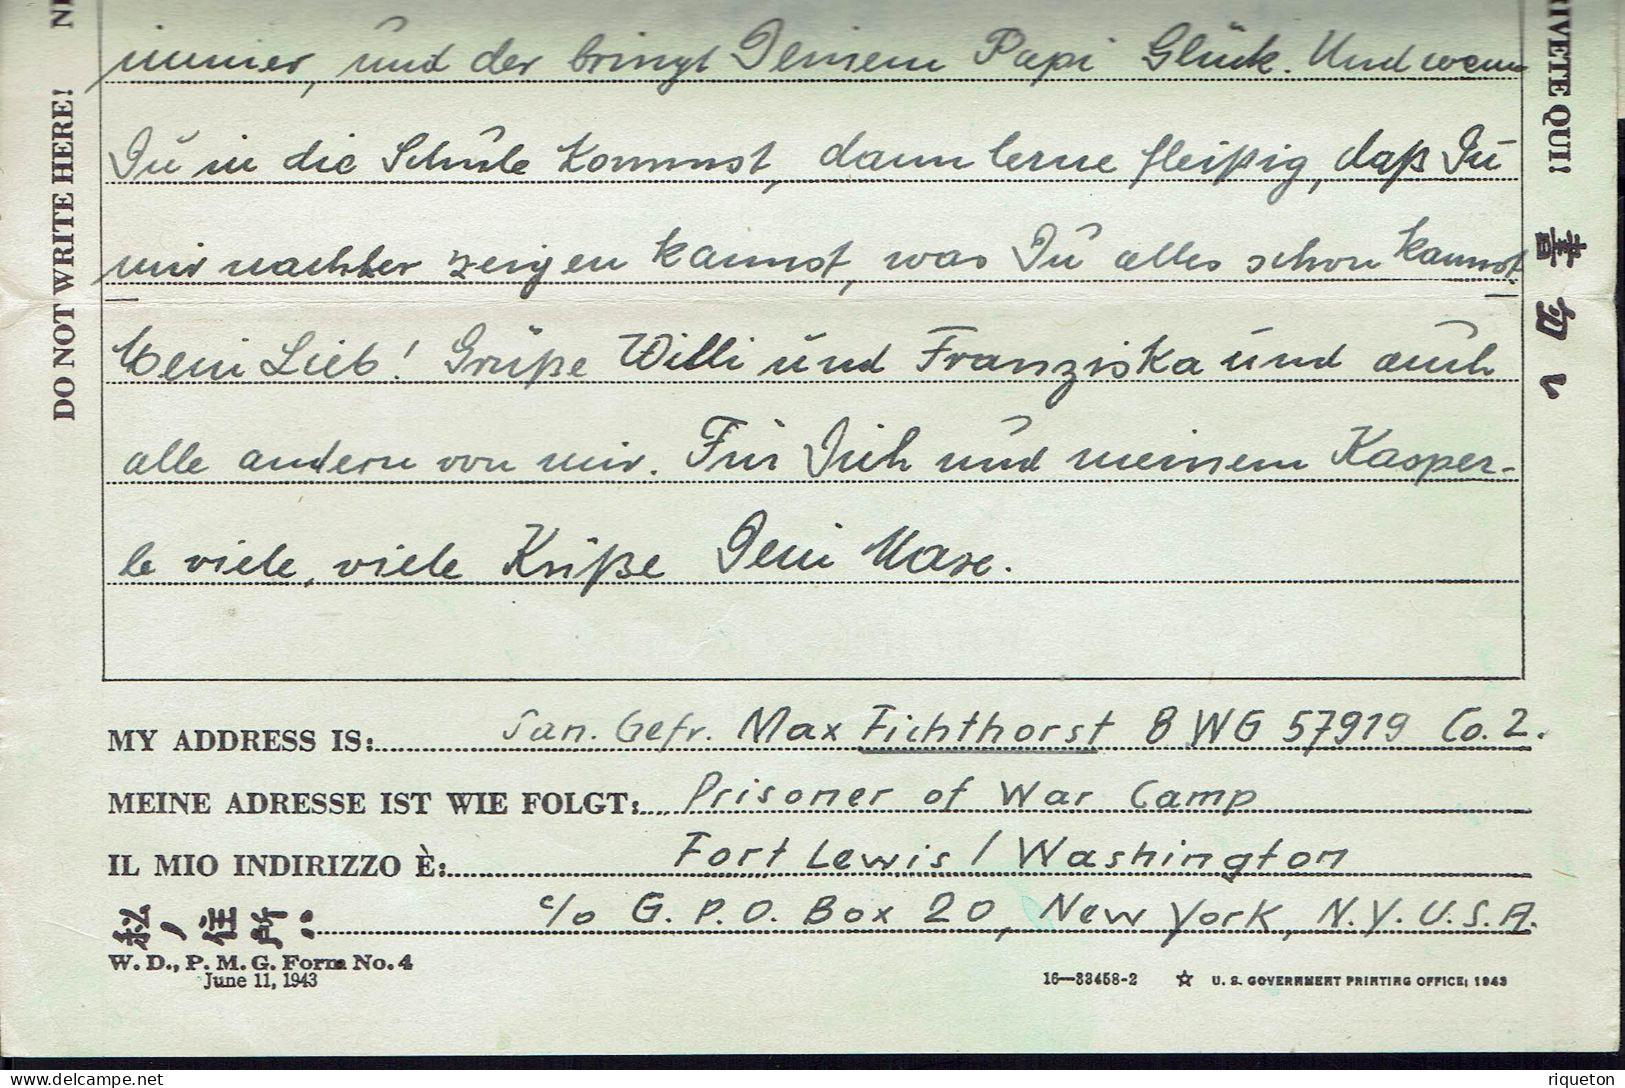 immer, und der bringt Deinem Papi Glück. Und wenn
Du in die Schule kommst, dann lerne fleißig, daß Du
mir nachher zeigen kannst, was Du alles schon kannst.
Mein Lieb! Grüße Willi und Franziska und auch
alle andern von mir. Für Dich und meinem Kasper-
le viele, viele Küße Dein Maxe.
MY ADDRESS IS: San. Gefr. Max Fichthorst 8 WG 57919 Co. 2.
MEINE ADRESSE IST WIE FOLGT: Prisoner of War Camp
IL MIO INDIRIZZO È: Fort Lewis / Washington
私ノ住所: c/o G. P. O. Box 20, New York, N. Y. U. S. A.
W. D., P. M. G. Form No. 4
June 11, 1943
16—33458-2 ☆ U. S. GOVERNMENT PRINTING OFFICE: 1943
DO NOT WRITE HERE!
RIVETE QUI!
書勿レ
riqueton